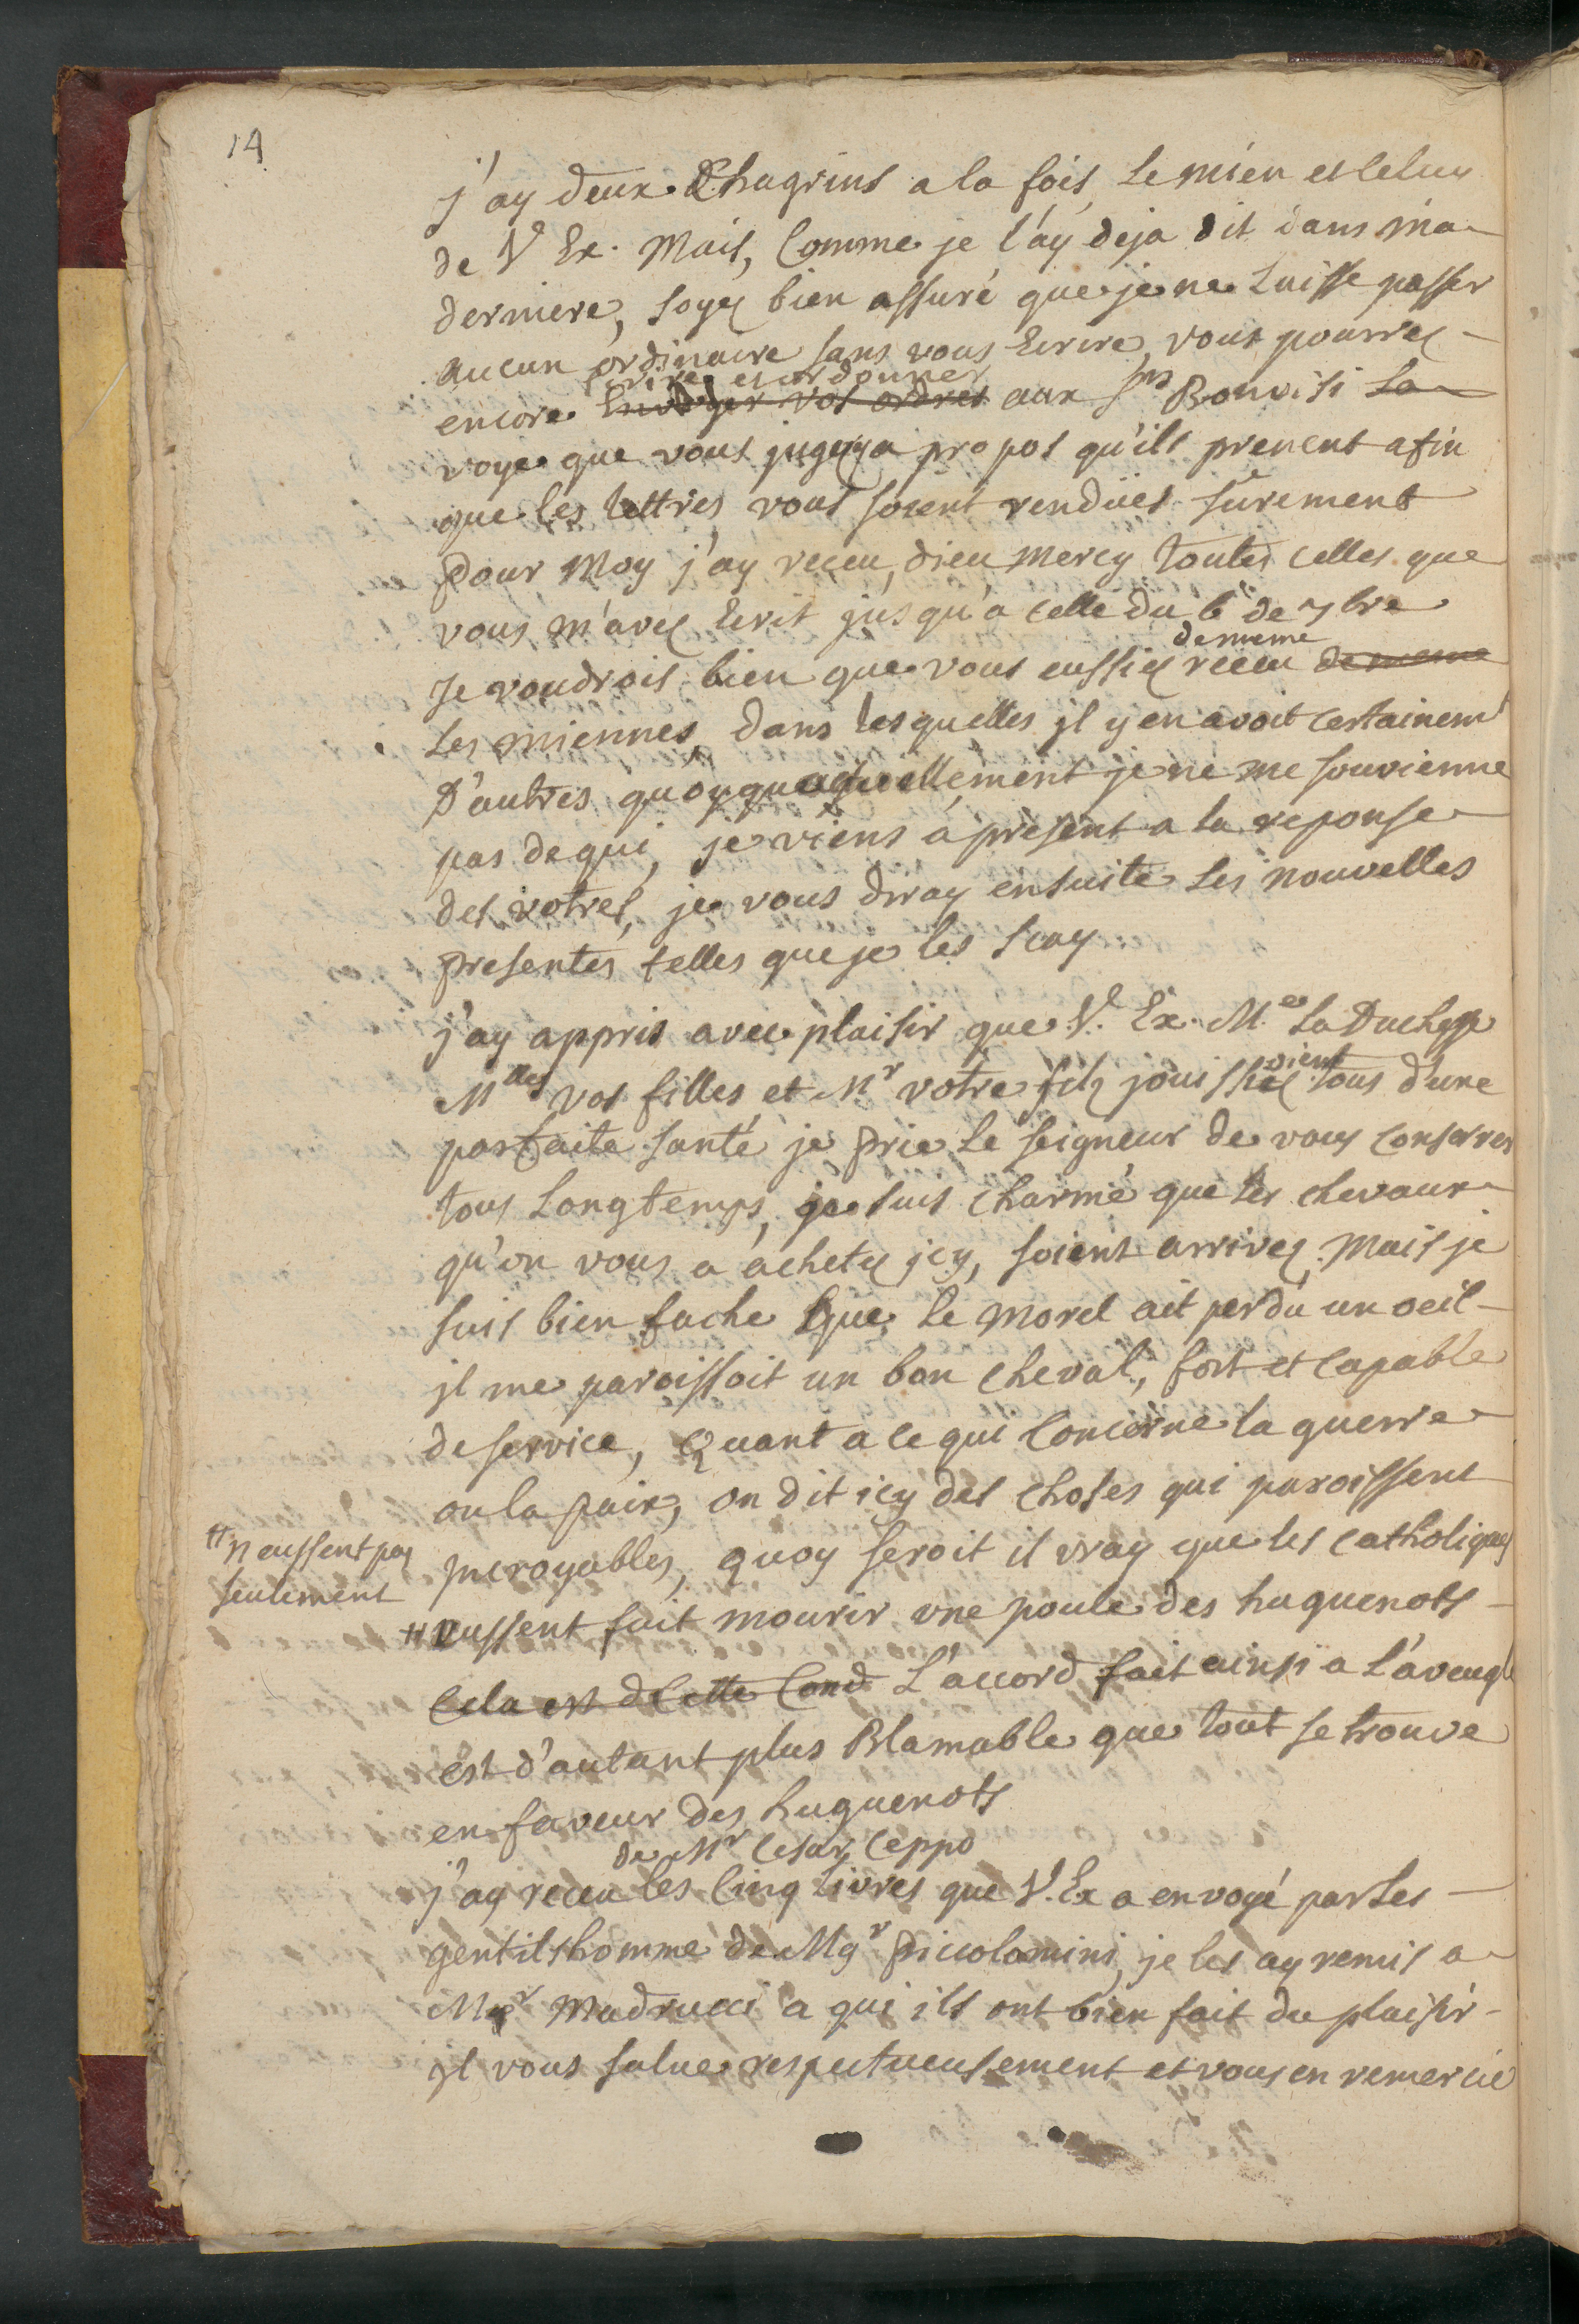 14
j'ay deux Chagrins a la fois, le mien et celuy
de V. Ex. Mais, Comme je l'ay deja dit dans ma
derniere, soyez bien assuré que je ne laisse passer
aucun ordinaire sans vous Ecrire, vous pourrez
ecrire et ordonner
encore Envoyer vos ordres aux Srs Bonvisi la
voye que vous jugerez a propos qu'ils prenent afin
que les lettres vous soient rendües sûrement
Pour Moy j'ay receu, dieu mercy toutes celles que
vous m'avez Ecrit jusqu'a celle du 6e de 7bre
de meme
Je voudrois bien que vous eussiez receu de meme
les miennes, dans lesquelles jl y en avoit certainemt
D'autres quoyqu'actuellement je ne me souvienne
pas de qui, je viens a present a la reponse
des votres, je vous diray ensuite les nouvelles
presentes telles que je les scay
j'ay appris avec plaisir que V. Ex. Me la Duchesse
Mlles vos filles et Mr votre fils jouissiez tous d'une
oient
parfaite santé je prie le seigneur de vous conserver
tous Longtemps, je suis charmé que les chevaux
qu'on vous a achetez jcy, soient arrivez. Mais je
suis bien fache que le Morel ait perdu un oeil
jl me paroissoit un bon cheval, fort et capable
de service, Quant a ce qui Concerne la guerre
ou la paix, on dit icy des choses qui paroissent
jncroyables, quoy seroit il vray que les catholiques
# n'eussent pas
seulement
# eussent fait mourir une poule des huguenots
Cela est de cette Cond L'accord fait ainsi a l'aveugle
est d'autant plus Blamable que tout se trouve
en faveur des huguenots
de Mr Cesar Ceppo
j'ay receu les Cinq Livres que V. Ex a envoyé par les
gentilshomme de Mgr Piccolomini, je les ay remis a
Mgr Madrucci a qui ils ont bien fait du plaisir
jl vous salue respectueusement et vous en remercie